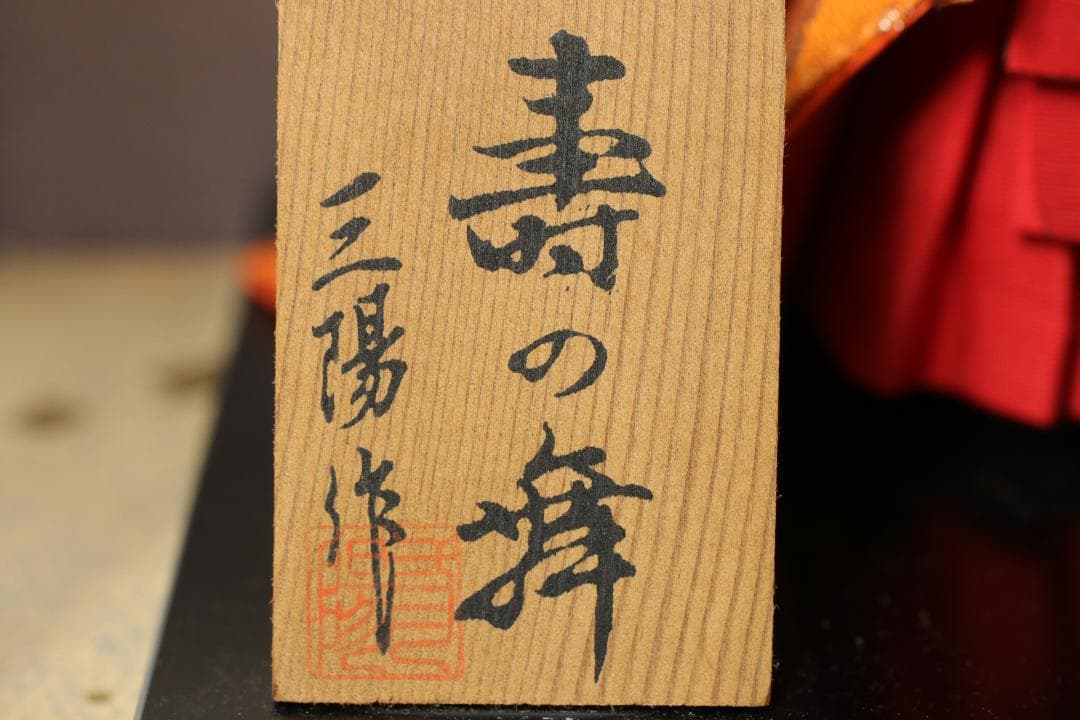 寿の舞
三陽作